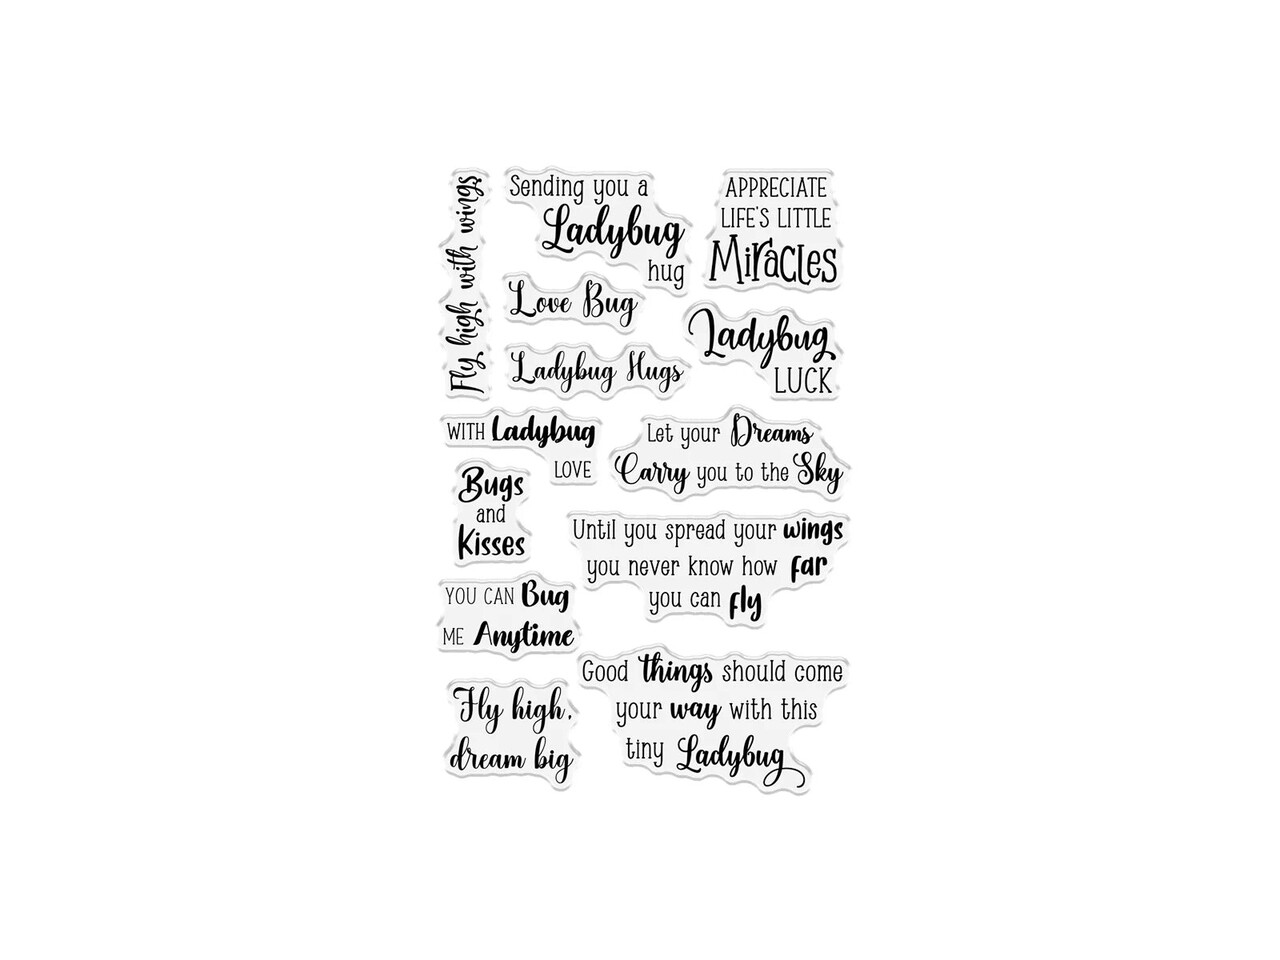 Fly high with wings
Sending you a
Ladybug
hug
APPRECIATE
LIFE'S LITTLE
Miracles
Love Bug
Ladybug
LUCK
Ladybug Hugs
WITH Ladybug
LOVE
Let your Dreams
Carry you to the Sky
Bugs
and
Kisses
Until you spread your wings
you never know how far
you can fly
YOU CAN Bug
ME Anytime
Good things should come
your way with this
tiny Ladybug
Fly high,
dream big